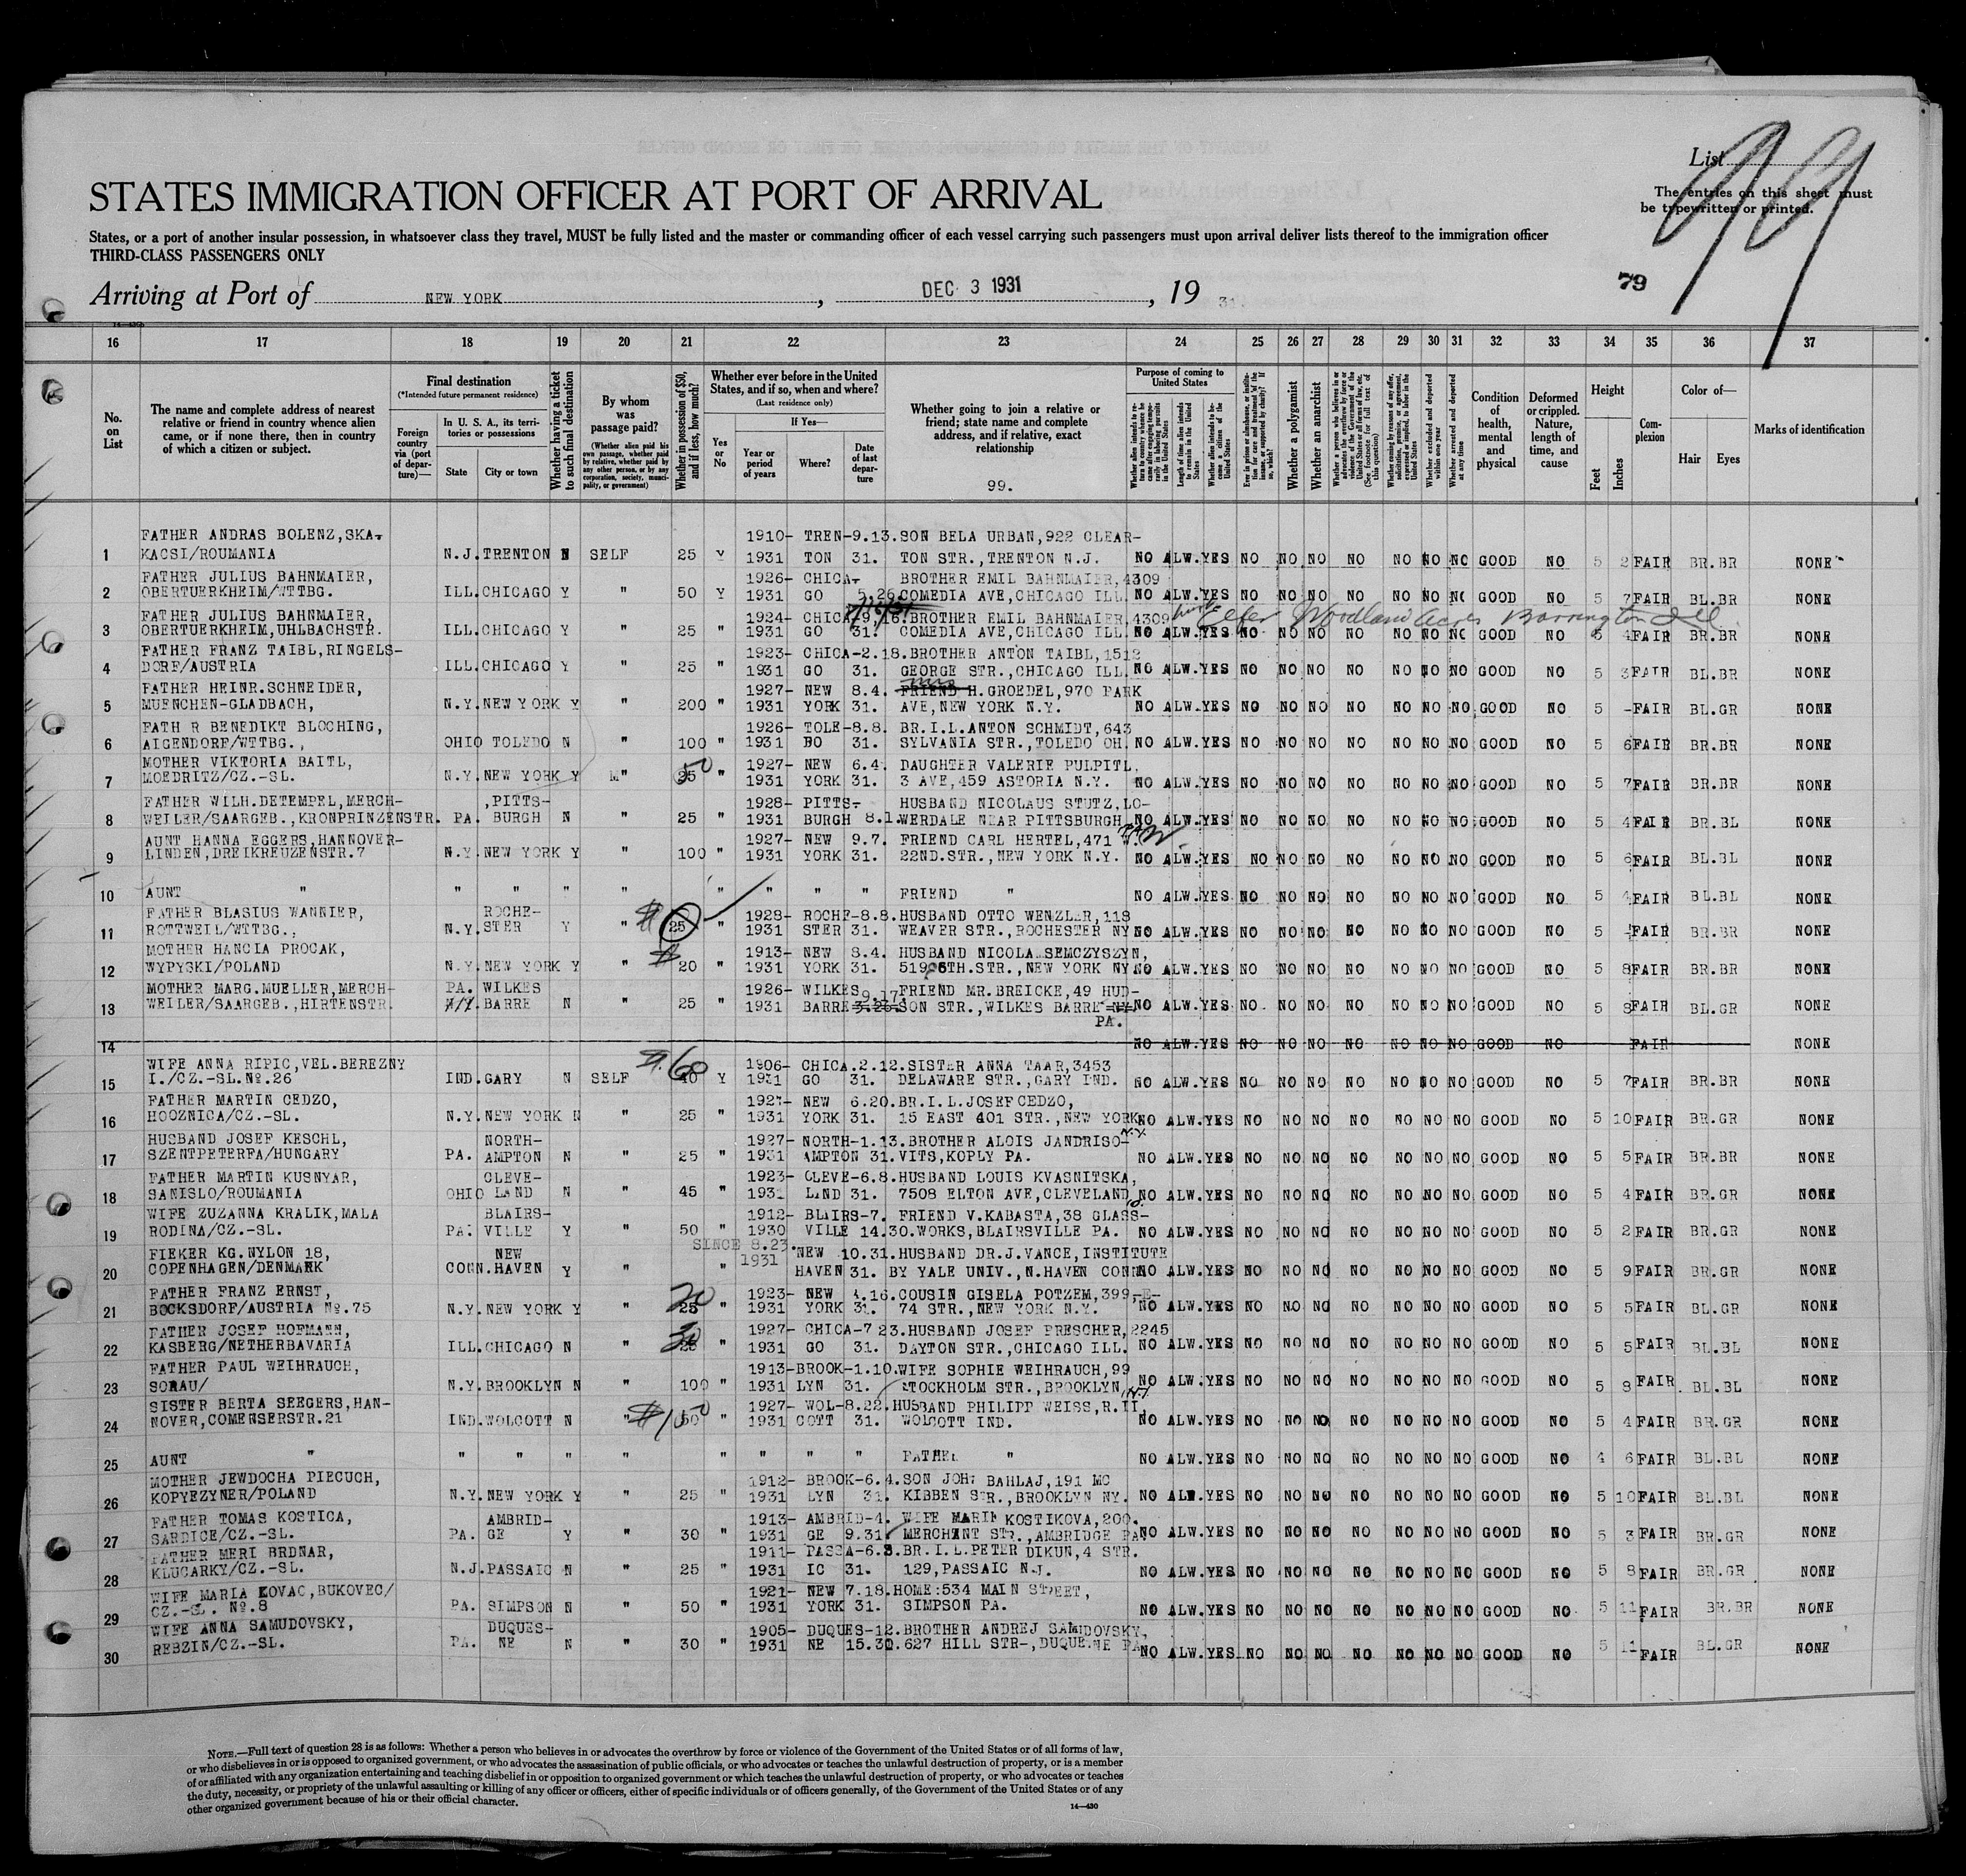 List
99
The entries on this sheet must
be typewritten or printed.
STATES IMMIGRATION OFFICER AT PORT OF ARRIVAL
States, or a port of another insular possession, in whatsoever class they travel, MUST be fully listed and the master or commanding officer of each vessel carrying such passengers must upon arrival deliver lists thereof to the immigration officer
THIRD-CLASS PASSENGERS ONLY
79
Arriving at Port of NEW YORK, DEC 3 1931, 19 31.
16 17 18 19 20 21 22 23 24 25 26 27 28 29 30 31 32 33 34 35 36 37
No. on List
The name and complete address of nearest relative or friend in country whence alien came, or if none there, then in country of which a citizen or subject.
Final destination
(*Intended future permanent residence)
Foreign country via (port of departure)—
In U. S. A., its territories or possessions
State City or town
Whether having a ticket to such final destination
By whom was passage paid?
(Whether alien paid his own passage, whether paid by relative, whether paid by any other person, or by any corporation, society, municipality, or government)
Whether in possession of $50, and if less, how much?
Whether ever before in the United States, and if so, when and where?
(Last residence only)
Yes or No
If Yes—
Year or period of years
Where?
Date of last departure
Whether going to join a relative or friend; state name and complete address, and if relative, exact relationship
99.
Purpose of coming to United States
Length of time alien intends to remain in the United States
Whether alien intends to become a citizen of the United States
Whether a polygamist
Whether an anarchist
Whether excluded and deported within one year
Whether arrested and deported at any time
Condition of health, mental and physical
Deformed or crippled. Nature, length of time, and cause
Height
Feet Inches
Complexion
Color of—
Hair Eyes
Marks of identification
FATHER ANDRAS BOLENZ,SKA- 1910- TREN-9.13.SON BELA URBAN,922 CLEAR-
1 KACSI/ROUMANIA N.J.TRENTON N SELF 25 Y 1931 TON 31. TON STR.,TRENTON N.J. NO ALW.YES NO NO NO NO NO NO NO GOOD NO 5 2 FAIR BR.BR NONE
FATHER JULIUS BAHNMAIER, 1926- CHICA- BROTHER EMIL BAHNMAIER,4309
2 OBERTUERKHEIM/WTTBG. ILL.CHICAGO Y " 50 Y 1931 GO 5.26.COMEDIA AVE,CHICAGO ILL. NO ALW.YES NO NO NO NO NO NO NO GOOD NO 5 7 FAIR BL.BR NONE
FATHER JULIUS BAHNMAIER, 1924- CHICA-9.16.BROTHER EMIL BAHNMAIER,4309 Elfer Woodland Acres Barrington Ill
3 OBERTUERKHEIM,UHLBACHSTR. ILL.CHICAGO Y " 25 " 1931 GO 31. COMEDIA AVE,CHICAGO ILL. NO ALW.YES NO NO NO NO NO NO NO GOOD NO 5 4 FAIR BR.BR NONE
FATHER FRANZ TAIBL,RINGELS- 1923- CHICA-2.18.BROTHER ANTON TAIBL,1512
4 DORF/AUSTRIA ILL.CHICAGO Y " 25 " 1931 GO 31. GEORGE STR.,CHICAGO ILL. NO ALW.YES NO NO NO NO NO NO NO GOOD NO 5 3 FAIR BL.BR NONE
FATHER HEINR.SCHNEIDER, 1927- NEW 8.4. FRIEND H.GROEDEL,970 PARK
5 MUENCHEN-GLADBACH, N.Y.NEW YORK Y " 200 " 1931 YORK 31. AVE,NEW YORK N.Y. NO ALW.YES NO NO NO NO NO NO NO GOOD NO 5 - FAIR BL.GR NONE
FATH R BENEDIKT BLOCHING, 1926- TOLE-8.8. BR.I.L.ANTON SCHMIDT,643
6 AIGENDORF/WTTBG., OHIO TOLEDO N " 100 " 1931 BO 31. SYLVANIA STR.,TOLEDO OH. NO ALW.YES NO NO NO NO NO NO NO GOOD NO 5 6 FAIR BR.BR NONE
MOTHER VIKTORIA BAITL, 1927- NEW 6.4. DAUGHTER VALERIE PULPITL,
7 MOEDRITZ/CZ.-SL. N.Y.NEW YORK Y M" 50 " 1931 YORK 31. 3 AVE,459 ASTORIA N.Y. NO ALW.YES NO NO NO NO NO NO NO GOOD NO 5 7 FAIR BR.BR NONE
FATHER WILH.DETEMPEL,MERCH- ,PITTS- 1928- PITTS- HUSBAND NICOLAUS STUTZ,LO-
8 WEILER/SAARGEB.,KRONPRINZENSTR. PA. BURGH N " 25 " 1931 BURGH 8.1.WERDALE NEAR PITTSBURGH, PA. NO ALW.YES NO NO NO NO NO NO NO GOOD NO 5 4 FAIR BR.BL NONE
AUNT HANNA EGGERS,HANNOVER- 1927- NEW 9.7. FRIEND CARL HERTEL,471 W.
9 LINDEN,DREIKREUZENSTR.7 N.Y.NEW YORK Y " 100 " 1931 YORK 31. 22ND.STR.,NEW YORK N.Y. NO ALW.YES NO NO NO NO NO NO NO GOOD NO 5 6 FAIR BL.BL NONE
10 AUNT " " " " " " " " " FRIEND " NO ALW.YES NO NO NO NO NO NO NO GOOD NO 5 4 FAIR BL.BL NONE
FATHER BLASIUS WANNIER, ROCHE- 1928- ROCHE-8.8.HUSBAND OTTO WENZLER,118
11 ROTTWEIL/WTTBG., N.Y.STER Y " 25 " 1931 STER 31. WEAVER STR.,ROCHESTER NY. NO ALW.YES NO NO NO NO NO NO NO GOOD NO 5 - FAIR BR.BR NONE
MOTHER HANCIA PROCAK, 1913- NEW 8.4. HUSBAND NICOLA SEMCZYSZYN,
12 WYPYSKI/POLAND N.Y.NEW YORK Y " 20 " 1931 YORK 31. 519 6TH.STR.,NEW YORK NY. NO ALW.YES NO NO NO NO NO NO NO GOOD NO 5 8 FAIR BR.BR NONE
MOTHER MARG.MUELLER,MERCH- PA. WILKES 1926- WILKES 9.17. FRIEND MR.BREICKE,49 HUD-
13 WEILER/SAARGEB.,HIRTENSTR. BARRE N " 25 " 1931 BARRE 3.26.SON STR.,WILKES BARRE NY. NO ALW.YES NO NO NO NO NO NO NO GOOD NO 5 8 FAIR BL.GR NONE
PA.
14 NO ALW.YES NO NO NO NO NO NO NO GOOD NO FAIR NONE
WIFE ANNA RIPIC,VEL.BEREZNY $60 1906- CHICA.2.12.SISTER ANNA TAAR,3453
15 I./CZ.-SL.No.26 IND.GARY N SELF 40 Y 1931 GO 31. DELAWARE STR.,GARY IND. NO ALW.YES NO NO NO NO NO NO NO GOOD NO 5 7 FAIR BR.BR NONE
FATHER MARTIN CEDZO, 1927- NEW 6.20.BR.I.L.JOSEF CEDZO,
16 HOOZNICA/CZ.-SL. N.Y.NEW YORK N " 25 " 1931 YORK 31. 15 EAST 401 STR.,NEW YORK N.Y. NO ALW.YES NO NO NO NO NO NO NO GOOD NO 5 10 FAIR BR.GR NONE
HUSBAND JOSEF KESCHL, NORTH- 1927- NORTH-1.13.BROTHER ALOIS JANDRISO-
17 SZENTPETERFA/HUNGARY PA. AMPTON N " 25 " 1931 AMPTON 31.VITS,KOPLY PA. NO ALW.YES NO NO NO NO NO NO NO GOOD NO 5 5 FAIR BR.BR NONE
FATHER MARTIN KUSNYAR, CLEVE- 1923- CLEVE-6.8.HUSBAND LOUIS KVASNITSKA,
18 SANISLO/ROUMANIA OHIO LAND N " 45 " 1931 LAND 31. 7508 ELTON AVE,CLEVELAND O. NO ALW.YES NO NO NO NO NO NO NO GOOD NO 5 4 FAIR BR.GR NONE
WIFE ZUZANNA KRALIK,MALA BLAIRS- 1912- BLAIRS-7. FRIEND V.KABASTA,38 GLASS-
19 RODINA/CZ.-SL. PA. VILLE Y 50 " 1930 VILLE 14.30.WORKS,BLAIRSVILLE PA. NO ALW.YES NO NO NO NO NO NO NO GOOD NO 5 2 FAIR BR.GR NONE
FIEKER KG.NYLON 18, NEW SINCE 8.23. NEW 10.31.HUSBAND DR.J.VANCE,INSTITUTE
20 COPENHAGEN/DENMARK CONN.HAVEN Y " " 1931 HAVEN 31. BY YALE UNIV.,N.HAVEN CONN. NO ALW.YES NO NO NO NO NO NO NO GOOD NO 5 9 FAIR BR.GR NONE
FATHER FRANZ ERNST, 1923- NEW 4.16.COUSIN GISELA POTZEM,399,-E-
21 BOCKSDORF/AUSTRIA No.75 N.Y.NEW YORK Y " 20 " 1931 YORK 31. 74 STR.,NEW YORK N.Y. NO ALW.YES NO NO NO NO NO NO NO GOOD NO 5 5 FAIR BL.GR NONE
FATHER JOSEF HOFMANN, 1927- CHICA-7 23.HUSBAND JOSEF PRESCHER,2245
22 KASBERG/NETHERBAVARIA ILL.CHICAGO N " 30 " 1931 GO 31. DAYTON STR.,CHICAGO ILL. NO ALW.YES NO NO NO NO NO NO NO GOOD NO 5 5 FAIR BL.BL NONE
FATHER PAUL WEIHRAUCH, 1913-BROOK-1.10.WIFE SOPHIE WEIHRAUCH,99
23 SORAU/ N.Y.BROOKLYN N " 100 " 1931 LYN 31. STOCKHOLM STR.,BROOKLYN, N.Y. NO ALW.YES NO NO NO NO NO NO NO GOOD NO 5 8 FAIR BL.BL NONE
SISTER BERTA SEEGERS,HAN- 1927- WOL-8.22.HUSBAND PHILIPP WEISS,R.II,
24 NOVER,COMENSERSTR.21 IND.WOLCOTT N " $150 " 1931 COTT 31. WOLCOTT IND. NO ALW.YES NO NO NO NO NO NO NO GOOD NO 5 4 FAIR BR.GR NONE
25 AUNT " " " " " " " " " " FATHER " NO ALW.YES NO NO NO NO NO NO NO GOOD NO 4 6 FAIR BL.BL NONE
MOTHER JEWDOCHA PIECUCH, 1912- BROOK-6.4.SON JOHN BAHLAJ,191 MC
26 KOPYEZYNER/POLAND N.Y.NEW YORK Y " 25 " 1931 LYN 31. KIBBEN STR.,BROOKLYN NY. NO ALW.YES NO NO NO NO NO NO NO GOOD NO 5 10 FAIR BL.BL NONE
FATHER TOMAS KOSTICA, AMBRID- 1913- AMBRID-4. WIFE MARIE KOSTIKOVA,200.
27 SARDICE/CZ.-SL. PA. GE Y " 30 " 1931 GE 9.31. MERCHANT STR.,AMBRIDGE PA. NO ALW.YES NO NO NO NO NO NO NO GOOD NO 5 3 FAIR BR.GR NONE
FATHER MERI BRDNAR, 1911- PASSA-6.8.BR.I.L.PETER DIKUN,4 STR.
28 KLUCARKY/CZ.-SL. N.J.PASSAIC N " 25 " 1931 IC 31. 129,PASSAIC N.J. NO ALW.YES NO NO NO NO NO NO NO GOOD NO 5 8 FAIR BR.GR NONE
WIFE MARIA KOVAC,BUKOVEC/ 1921- NEW 7.18.HOME:534 MAIN STREET,
29 CZ.-SL. No.8 PA. SIMPSON N " 50 " 1931 YORK 31. SIMPSON PA. NO ALW.YES NO NO NO NO NO NO NO GOOD NO 5 11 FAIR BR.BR NONE
WIFE ANNA SAMUDOVSKY, DUQUES- 1905- DUQUES-12.BROTHER ANDREJ SAMUDOVSKY,
30 REBZIN/CZ.-SL. PA. NE N " 30 " 1931 NE 15.30.627 HILL STR-,DUQUESNE PA. NO ALW.YES NO NO NO NO NO NO NO GOOD NO 5 11 FAIR BL.GR NONE
NOTE.—Full text of question 28 is as follows: Whether a person who believes in or advocates the overthrow by force or violence of the Government of the United States or of all forms of law,
or who disbelieves in or is opposed to organized government, or who advocates the assassination of public officials, or who advocates or teaches the unlawful destruction of property, or is a member
of or affiliated with any organization entertaining and teaching disbelief in or opposition to organized government or which teaches the unlawful destruction of property, or who advocates or teaches
the duty, necessity, or propriety of the unlawful assaulting or killing of any officer or officers, either of specific individuals or of officers generally, of the Government of the United States or of any
other organized government because of his or their official character.
14—430